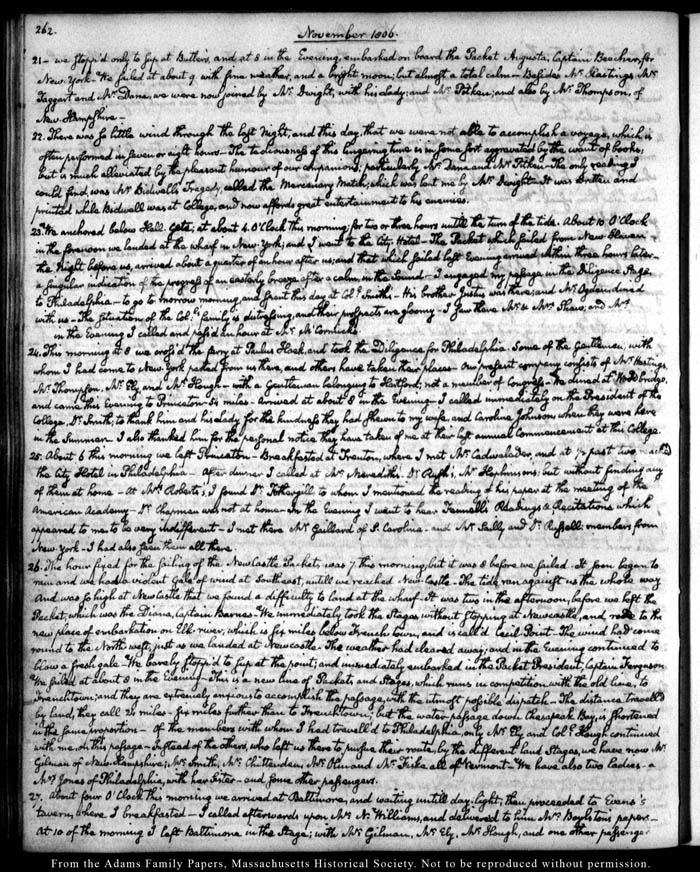 262.
November 1806.
21— we stopp'd only to sup at Butler's, and at 8 in the Evening, embarked on board the Packet Augusta, Captain Beecher, for
New-York. We sailed at about 9. with fine weather, and a bright moon; but almost a total calm— Besides Mr. Hastings, Mr.
Taggart and Mr. Dana, we were now joined by Mr. Dwight, with his lady; and Mr. Pitkin; and also by Mr. Thompson, of
New-Hampshire—
22. There was so little wind through the last Night, and this day, that we were not able to accomplish a voyage, which is
often performed in seven or eight hours— The tediousness of this lingering time is in some sort aggravated by the want of books,
but is much alleviated by the pleasant humour of our companions; particularly Mr. Dana and Mr. Pitkin. The only reading I
could find, was Mr. Bidwell's Tragedy, called the Mercenary Match; which was lent me by Mr. Dwight— It was written and
printed while Bidwell was at College, and now affords great entertainment to his enemies.
23. We anchored below Hell-Gate, at about 4. O'Clock this morning, for two or three hours untill the turn of the tide. About 10 O'Clock
in the forenoon we landed at the wharf in New-York; and I went to the City-Hotel— The Packet which sailed from New-Haven
the Night before us, arrived about a quarter of an hour after us; and that which sailed last Evening arrived within three hours later—
a singular indication of the progress of an easterly breeze after a calm in the Sound— I engaged my passage in the Diligence Stage,
to Philadelphia— to go to morrow morning, and spent this day at Coll. Smith's— His brother Justus was there; and Mr. Ogden dined
with us— The situation of the Coll's. family is distressing, and their prospects are gloomy— I saw there Mr. & Mrs. Shaw, and Mrs.
in the Evening I called and pass'd an hour at Mr. McCormick's.
24. This morning at 8 we cross'd the ferry at Paulus Hook, and took the Diligence for Philadelphia. Some of the Gentlemen, with
whom I had come to New York parted from us here, and others have taken their places— Our present company consists of Mr. Hastings,
Mr. Thompson, Mr. Ely and Mr. Hough— with a Gentleman belonging to Hartford, not a member of Congress— We dined at Woodbridge,
and came this Evening to Princeton— 54 miles— Arrived at about 8 in the Evening— I called immediately on the President of the
College, Dr. Smith, to thank him and his lady for the kindness they had shewn to my wife, and Caroline Johnson when they were here
in the Summer. I also thanked him for the personal notice they have taken of me at their last annual Commencement at this College.
25. About 6 this morning we left Princeton— Breakfasted at Trenton, where I met Mr. Cadwalader, and at 1/2 past two
the City Hotel in Philadelphia— After dinner I called at Mr. Meredith's. Dr. Rush's, Mr. Hopkinson's; but without finding any
of them at home— At Mrs. Roberts's, I found Dr. Fothergill to whom I mentioned the reading of his paper at the meeting of the
American Academy— Dr. Chapman was not at home— In the Evening I went to hear Fennell's Readings & Recitations which
appeared to me to be very indifferent— I met there Mr. Gaillard of S. Carolina— and Mr. Sailly and Dr. Russell members from
New-York— I had also seen them all there.
26. The hour fixed for the sailing of the NewCastle Packet, was 7 this morning, but it was 8 before we sailed. It soon began to
rain and we had a violent Gale of wind at Southeast, untill we reached New-Castle— The tide ran against us the whole way
And was so high at NewCastle that we found a difficulty to land at the wharf. It was two in the afternoon, before we left the
Packet, which was the Diana, Captain Barnes. We immediately took the Stages without stopping at Newcastle, and rode to the
new place of embarkation on Elk-river, which is six miles below French town, and is call'd Cecil Point— The wind had come
round to the North-west, just as we landed at Newcastle. The weather had cleared away; and in the Evening continued to
blow a fresh gale— We barely stopp'd to sup at the point; and immediately embarked in the Packet President, Captain Ferguson.
We sailed at about 8 in the Evening— This is a new line of Packets, and Stages, which runs in competition with the old line, to
Frenchtown; and they are extremely anxious to accomplish the passage, with the utmost possible dispatch— The distance travell'd
by land, they call 22 miles— six miles further than to Frenchtown; but the water-passage down Chesapeak Bay, is shortened
in the same proportion— Of the members with whom I had travell'd to Philadelphia, only Mr. Ely and Coll. Hough continued
with me on this passage— Instead of the others, who left us there to pursue their route, by the different land Stages, we have now Mr.
Gilman of New-Hampshire; Mr. Smith, Mr. Chittenden, Mr. Olin and Mr. Fisk all of Vermont— We have also two ladies— a
Mrs. Jones of Philadelphia, with her Sister— and some other passengers.
27. About four O'Clock this morning we arrived at Baltimore, and waiting untill day-light, then proceeded to Evans's
tavern, where I breakfasted— I called afterwards upon Mr. N. Williams, and delivered to him Mrs. Boylston's papers—
At 10 of the morning I left Baltimore in the Stage; with Mr. Gilman, Mr. Ely, Mr. Hough, and one other passenger—
From the Adams Family Papers, Massachusetts Historical Society. Not to be reproduced without permission.